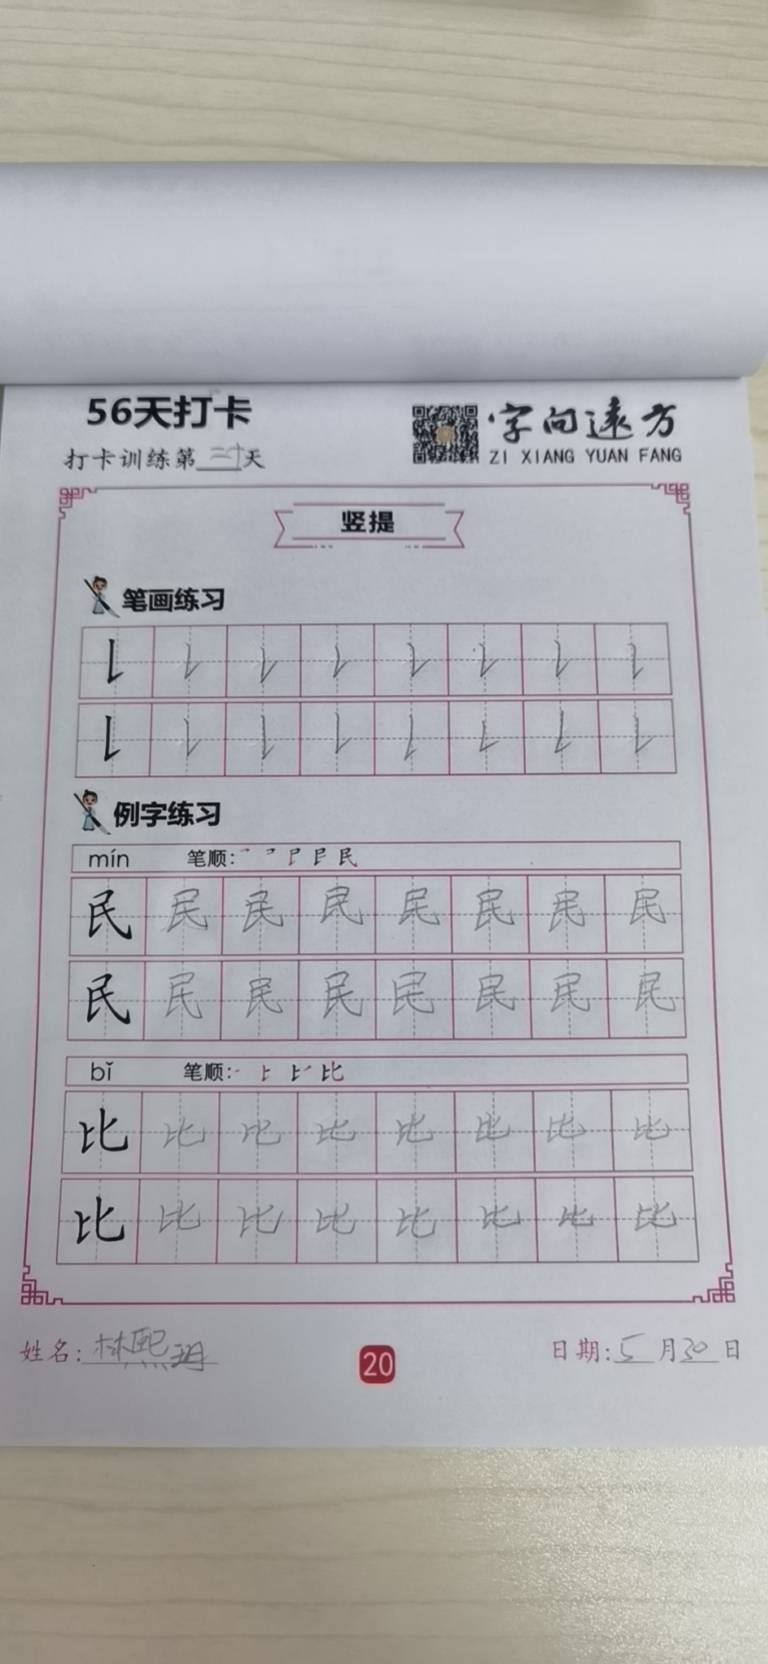 56天打卡
字向远方
打卡训练第二十天
ZI XIANG YUAN FANG
竖提
笔画练习
例字练习
mín 笔顺:
民 民 民 民 民 民 民 民
民 民 民 民 民 民 民 民
bǐ 笔顺:
比 比 比 比 比 比 比 比
比 比 比 比 比 比 比 比
姓名:林熙玥
20
日期:5月30日